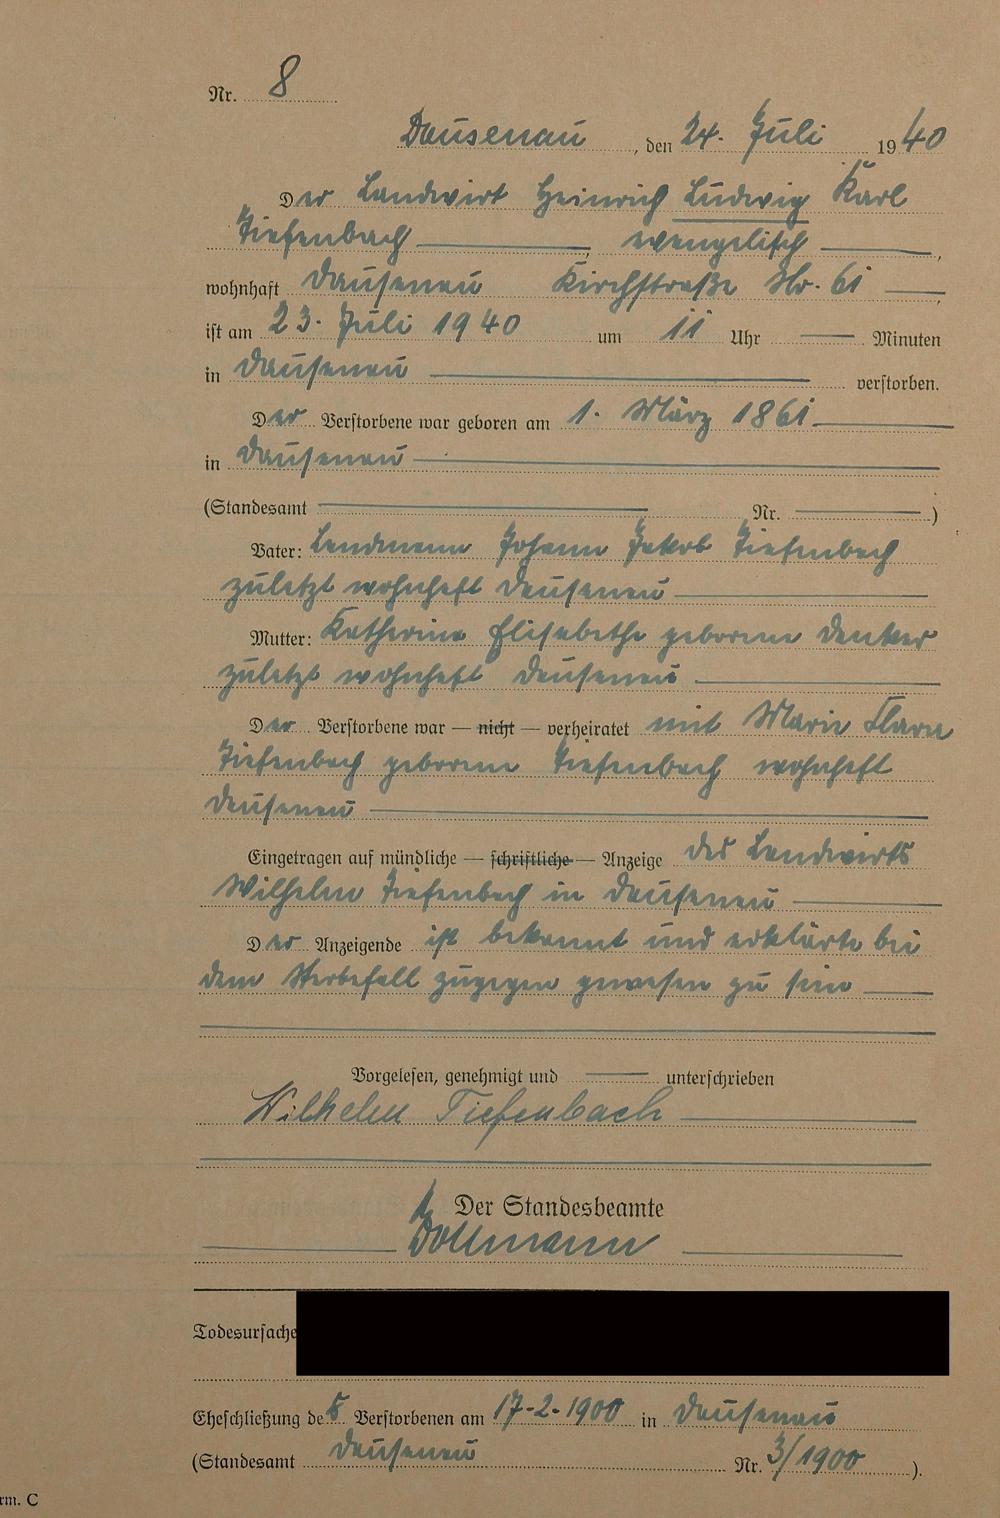 Nr. 8
Dausenau, den 24. Juli 1940
Der Landwirt Heinrich Ludwig Karl
Tiefenbach, evangelisch,
wohnhaft Dausenau Kirchstraße Nr. 61,
ist am 23. Juli 1940 um 11 Uhr — Minuten
in Dausenau verstorben.
Der Verstorbene war geboren am 1. März 1861
in Dausenau
(Standesamt — Nr. — )
Vater: Landmann Johann Jakob Tiefenbach
zuletzt wohnhaft Dausenau
Mutter: Katharina Elisabethe geborene Denker
zuletzt wohnhaft Dausenau
Der Verstorbene war — nicht — verheiratet mit Marie Klara
Tiefenbach geborene Tiefenbach wohnhaft
Dausenau
Eingetragen auf mündliche — schriftliche — Anzeige des Landwirts
Wilhelm Tiefenbach in Dausenau
Der Anzeigende ist bekannt und erklärte bei
dem Sterbefall zugegen gewesen zu sein
Vorgelesen, genehmigt und — unterschrieben
Wilhelm Tiefenbach
Der Standesbeamte
Dollmann
Todesursache
Eheschließung des Verstorbenen am 17-2-1900 in Dausenau
(Standesamt Dausenau Nr. 3/1900 ).
rm. C